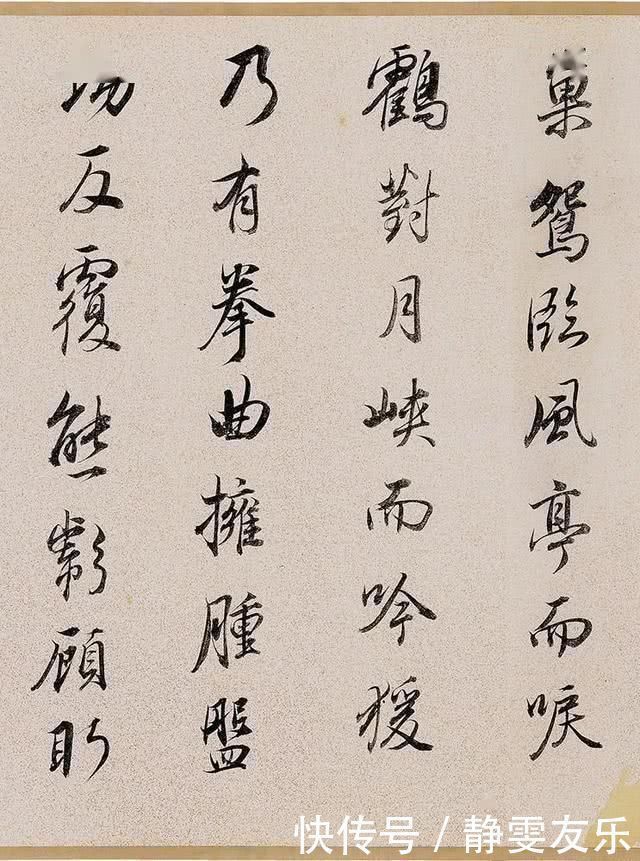 巢鴛臨風亭而唳
鶴對月峽而吟猨
乃有拳曲擁腫盤
坳反覆熊彪顧盼
快传号/静雯友乐